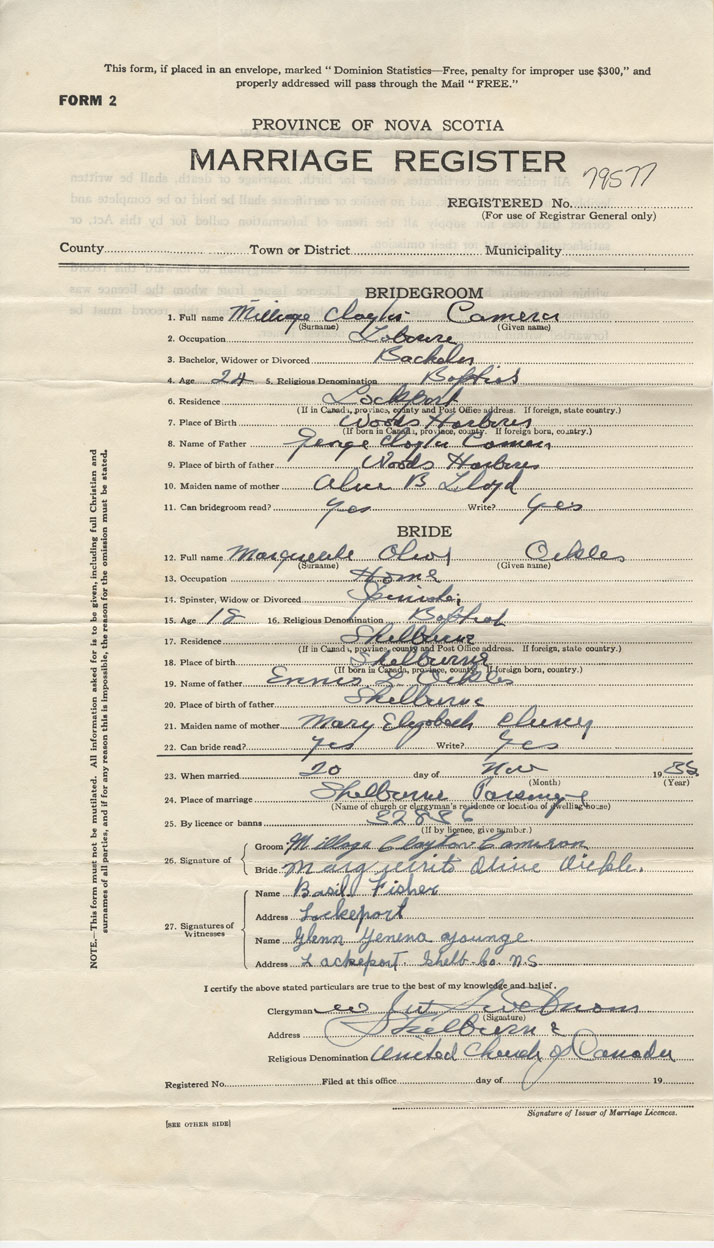 This form, if placed in an envelope, marked "Dominion Statistics—Free, penalty for improper use $300," and
properly addressed will pass through the Mail "FREE."
FORM 2
PROVINCE OF NOVA SCOTIA
MARRIAGE REGISTER
79577
REGISTERED No.
(For use of Registrar General only)
County Town or District Municipality
BRIDEGROOM
1. Full name Milloge Clayton Cameron
(Surname) (Given name)
2. Occupation Laborer
3. Bachelor, Widower or Divorced Bachelor
4. Age 24 5. Religious Denomination Baptist
6. Residence Lockeport
(If in Canada, province, county and Post Office address. If foreign, state country.)
7. Place of Birth Woods Harbour
(If born in Canada, province, county. If foreign born, country.)
8. Name of Father George Clayton Cameron
9. Place of birth of father Woods Harbour
10. Maiden name of mother Alice B Lloyd
11. Can bridegroom read? Yes Write? Yes
BRIDE
12. Full name Marguerite Olive Oickles
(Surname) (Given name)
13. Occupation Home
14. Spinster, Widow or Divorced Spinster
15. Age 18 16. Religious Denomination Baptist
17. Residence Shelburne
(If in Canada, province, county and Post Office address. If foreign, state country.)
18. Place of birth Shelburne
(If born in Canada, province, county. If foreign born, country.)
19. Name of father Ennis Oickles
20. Place of birth of father Shelburne
21. Maiden name of mother Mary Elizabeth
22. Can bride read? Yes Write? Yes
23. When married 20 day of Nov 19
(Month) (Year)
24. Place of marriage Shelburne Parsonage
(Name of church or clergyman's residence or location of dwelling house)
25. By licence or banns 32886
(If by licence, give number.)
26. Signature of
Groom Milloge Clayton Cameron
Bride Marguerite Olive Oickle.
27. Signatures of Witnesses
Name Basil Fisher
Address Lockeport
Name Glenn Yenena Younge
Address Lockeport. Shelb. Co. N.S
I certify the above stated particulars are true to the best of my knowledge and belief.
Clergyman
(Signature)
Address Shelburne
Religious Denomination United Church of Canada
Registered No. Filed at this office day of 19
Signature of Issuer of Marriage Licences.
[SEE OTHER SIDE]
NOTE.—This form must not be mutilated. All information asked for is to be given, including full Christian and
surnames of all parties, and if for any reason this is impossible, the reason for the omission must be stated.